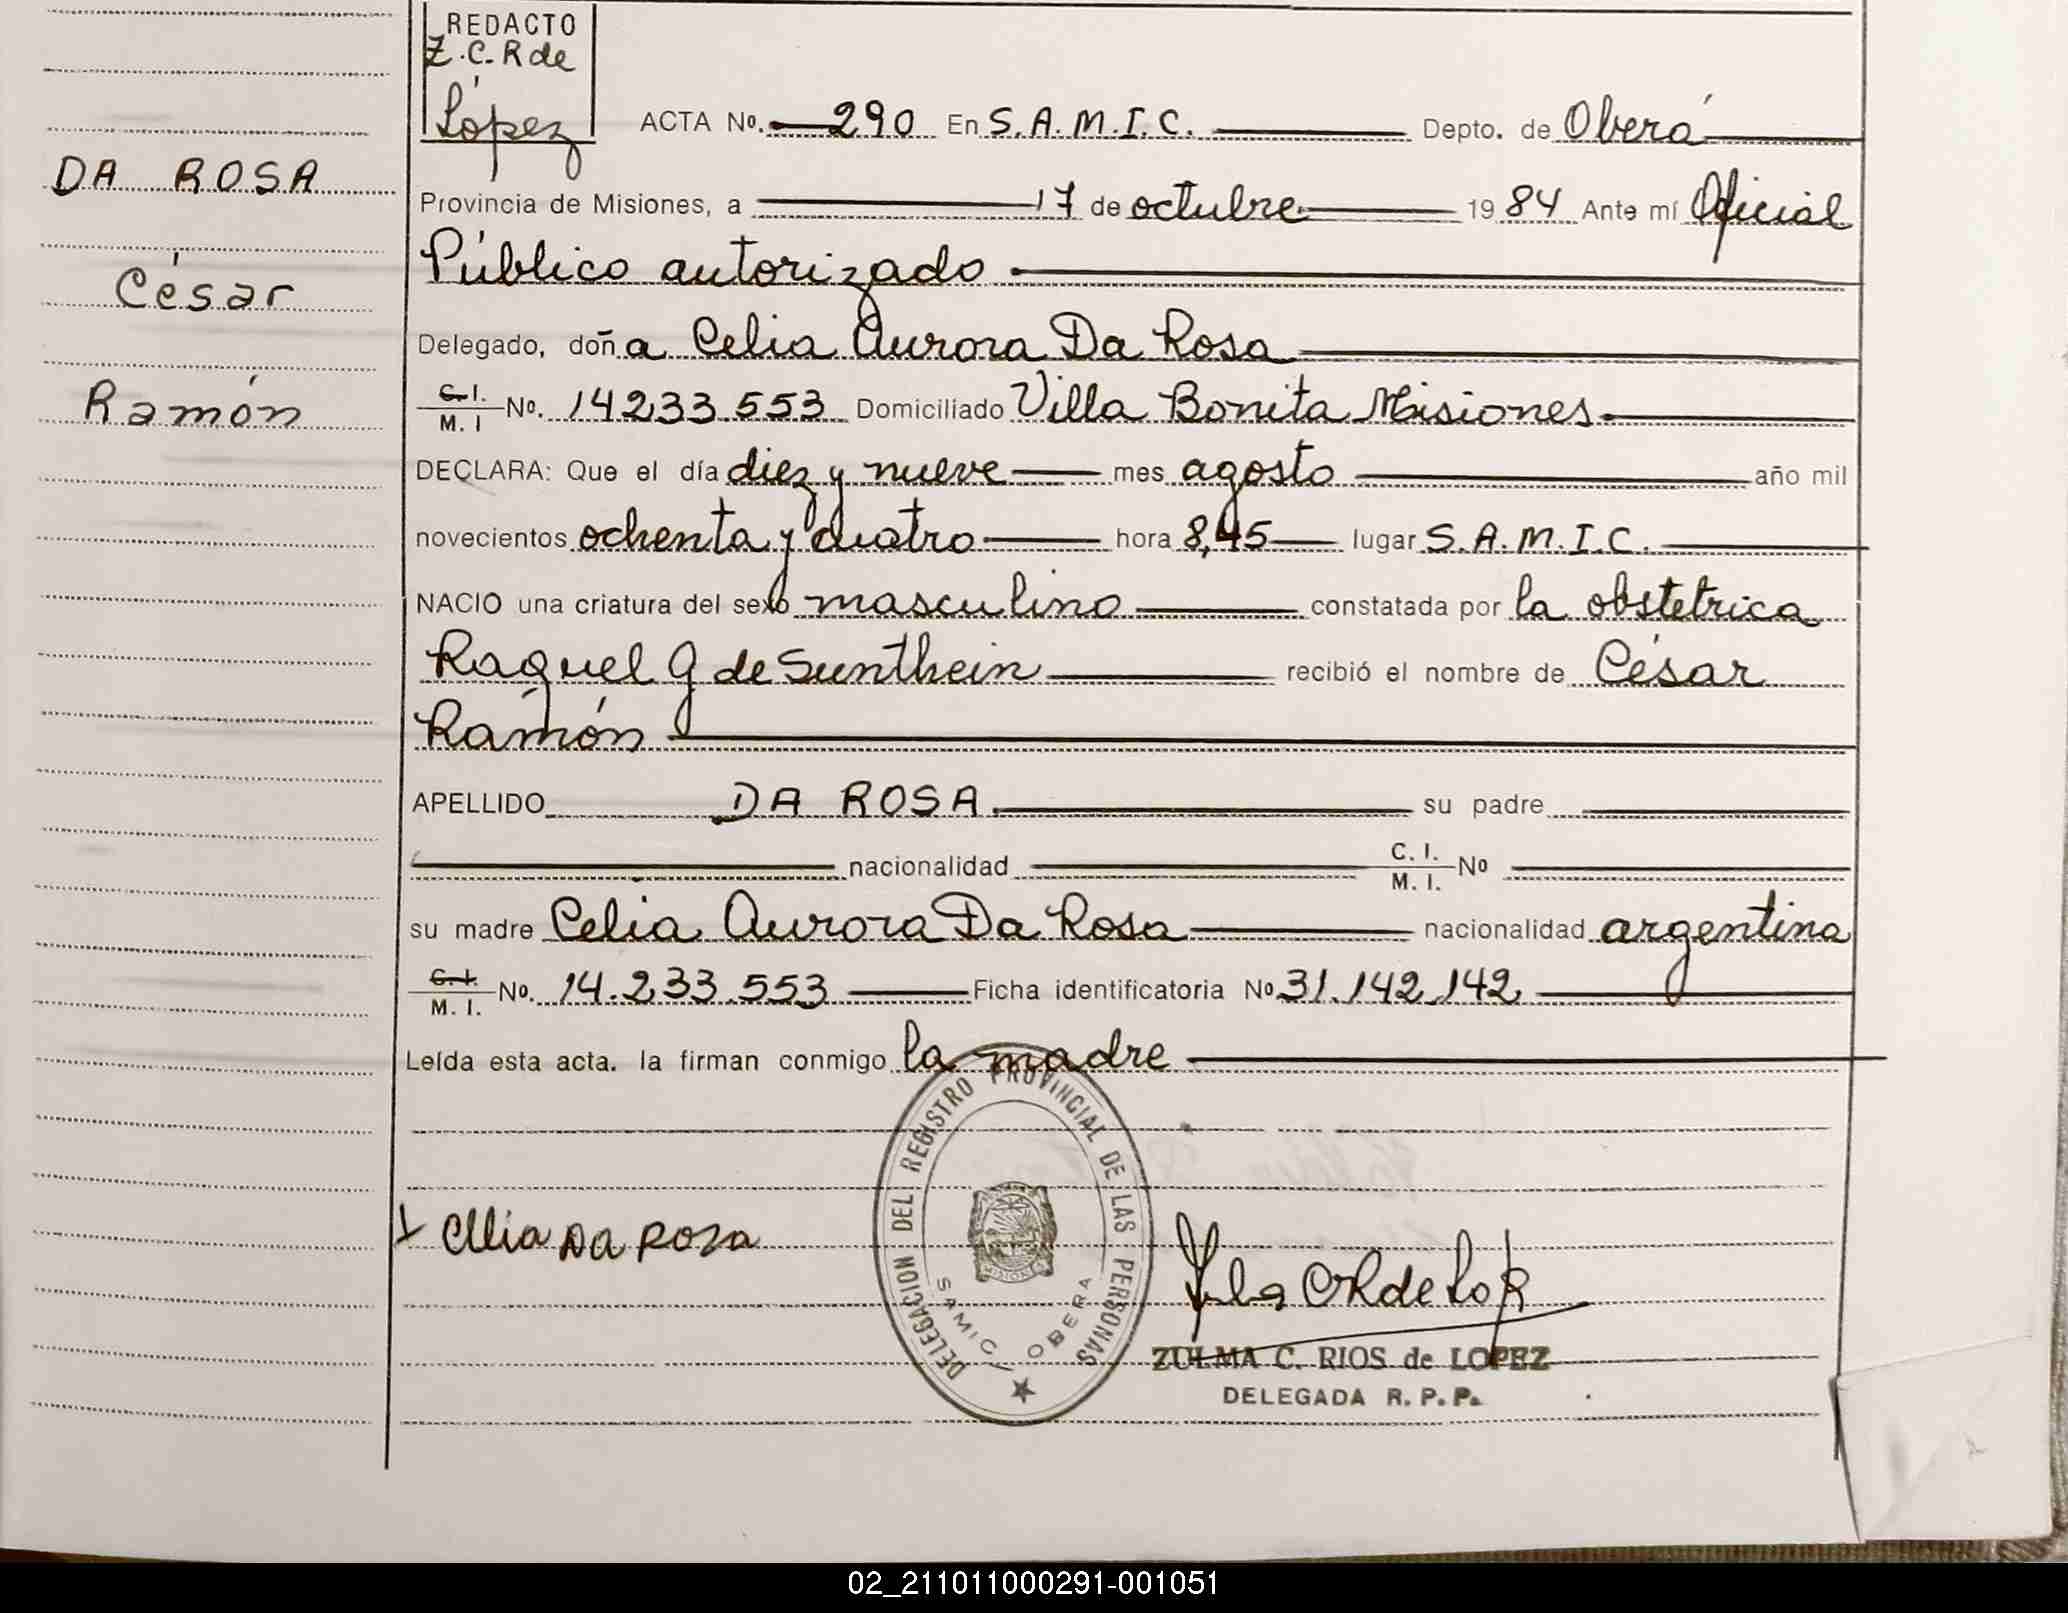 REDACTO
Z.C.R de
López
ACTA No. 290 En S.A.M.I.C. Depto. de Oberá
DA ROSA
Provincia de Misiones, a 17 de octubre 1984 Ante mí Oficial
Público autorizado
César
Delegado, doña Celia Aurora Da Rosa
Ramón
C.I. / M.I No. 14233.553 Domiciliado Villa Bonita Misiones
DECLARA: Que el día diez y nueve mes agosto año mil
novecientos ochenta y cuatro hora 8,45 lugar S.A.M.I.C.
NACIO una criatura del sexo masculino constatada por la obstetrica
Raquel G de Sunthein recibió el nombre de César
Ramón
APELLIDO DA ROSA. su padre
nacionalidad C.I. / M.I. No
su madre Celia Aurora Da Rosa nacionalidad argentina
C.I. / M.I. No. 14.233.553 Ficha identificatoria No 31.142.142
Leída esta acta. la firman conmigo la madre
DELEGACION DEL REGISTRO PROVINCIAL DE LAS PERSONAS
MISIONES
SAMIC OBERA
Celia DA Rosa
ZULMA C. RIOS de LOPEZ
DELEGADA R.P.P.
02_211011000291-001051